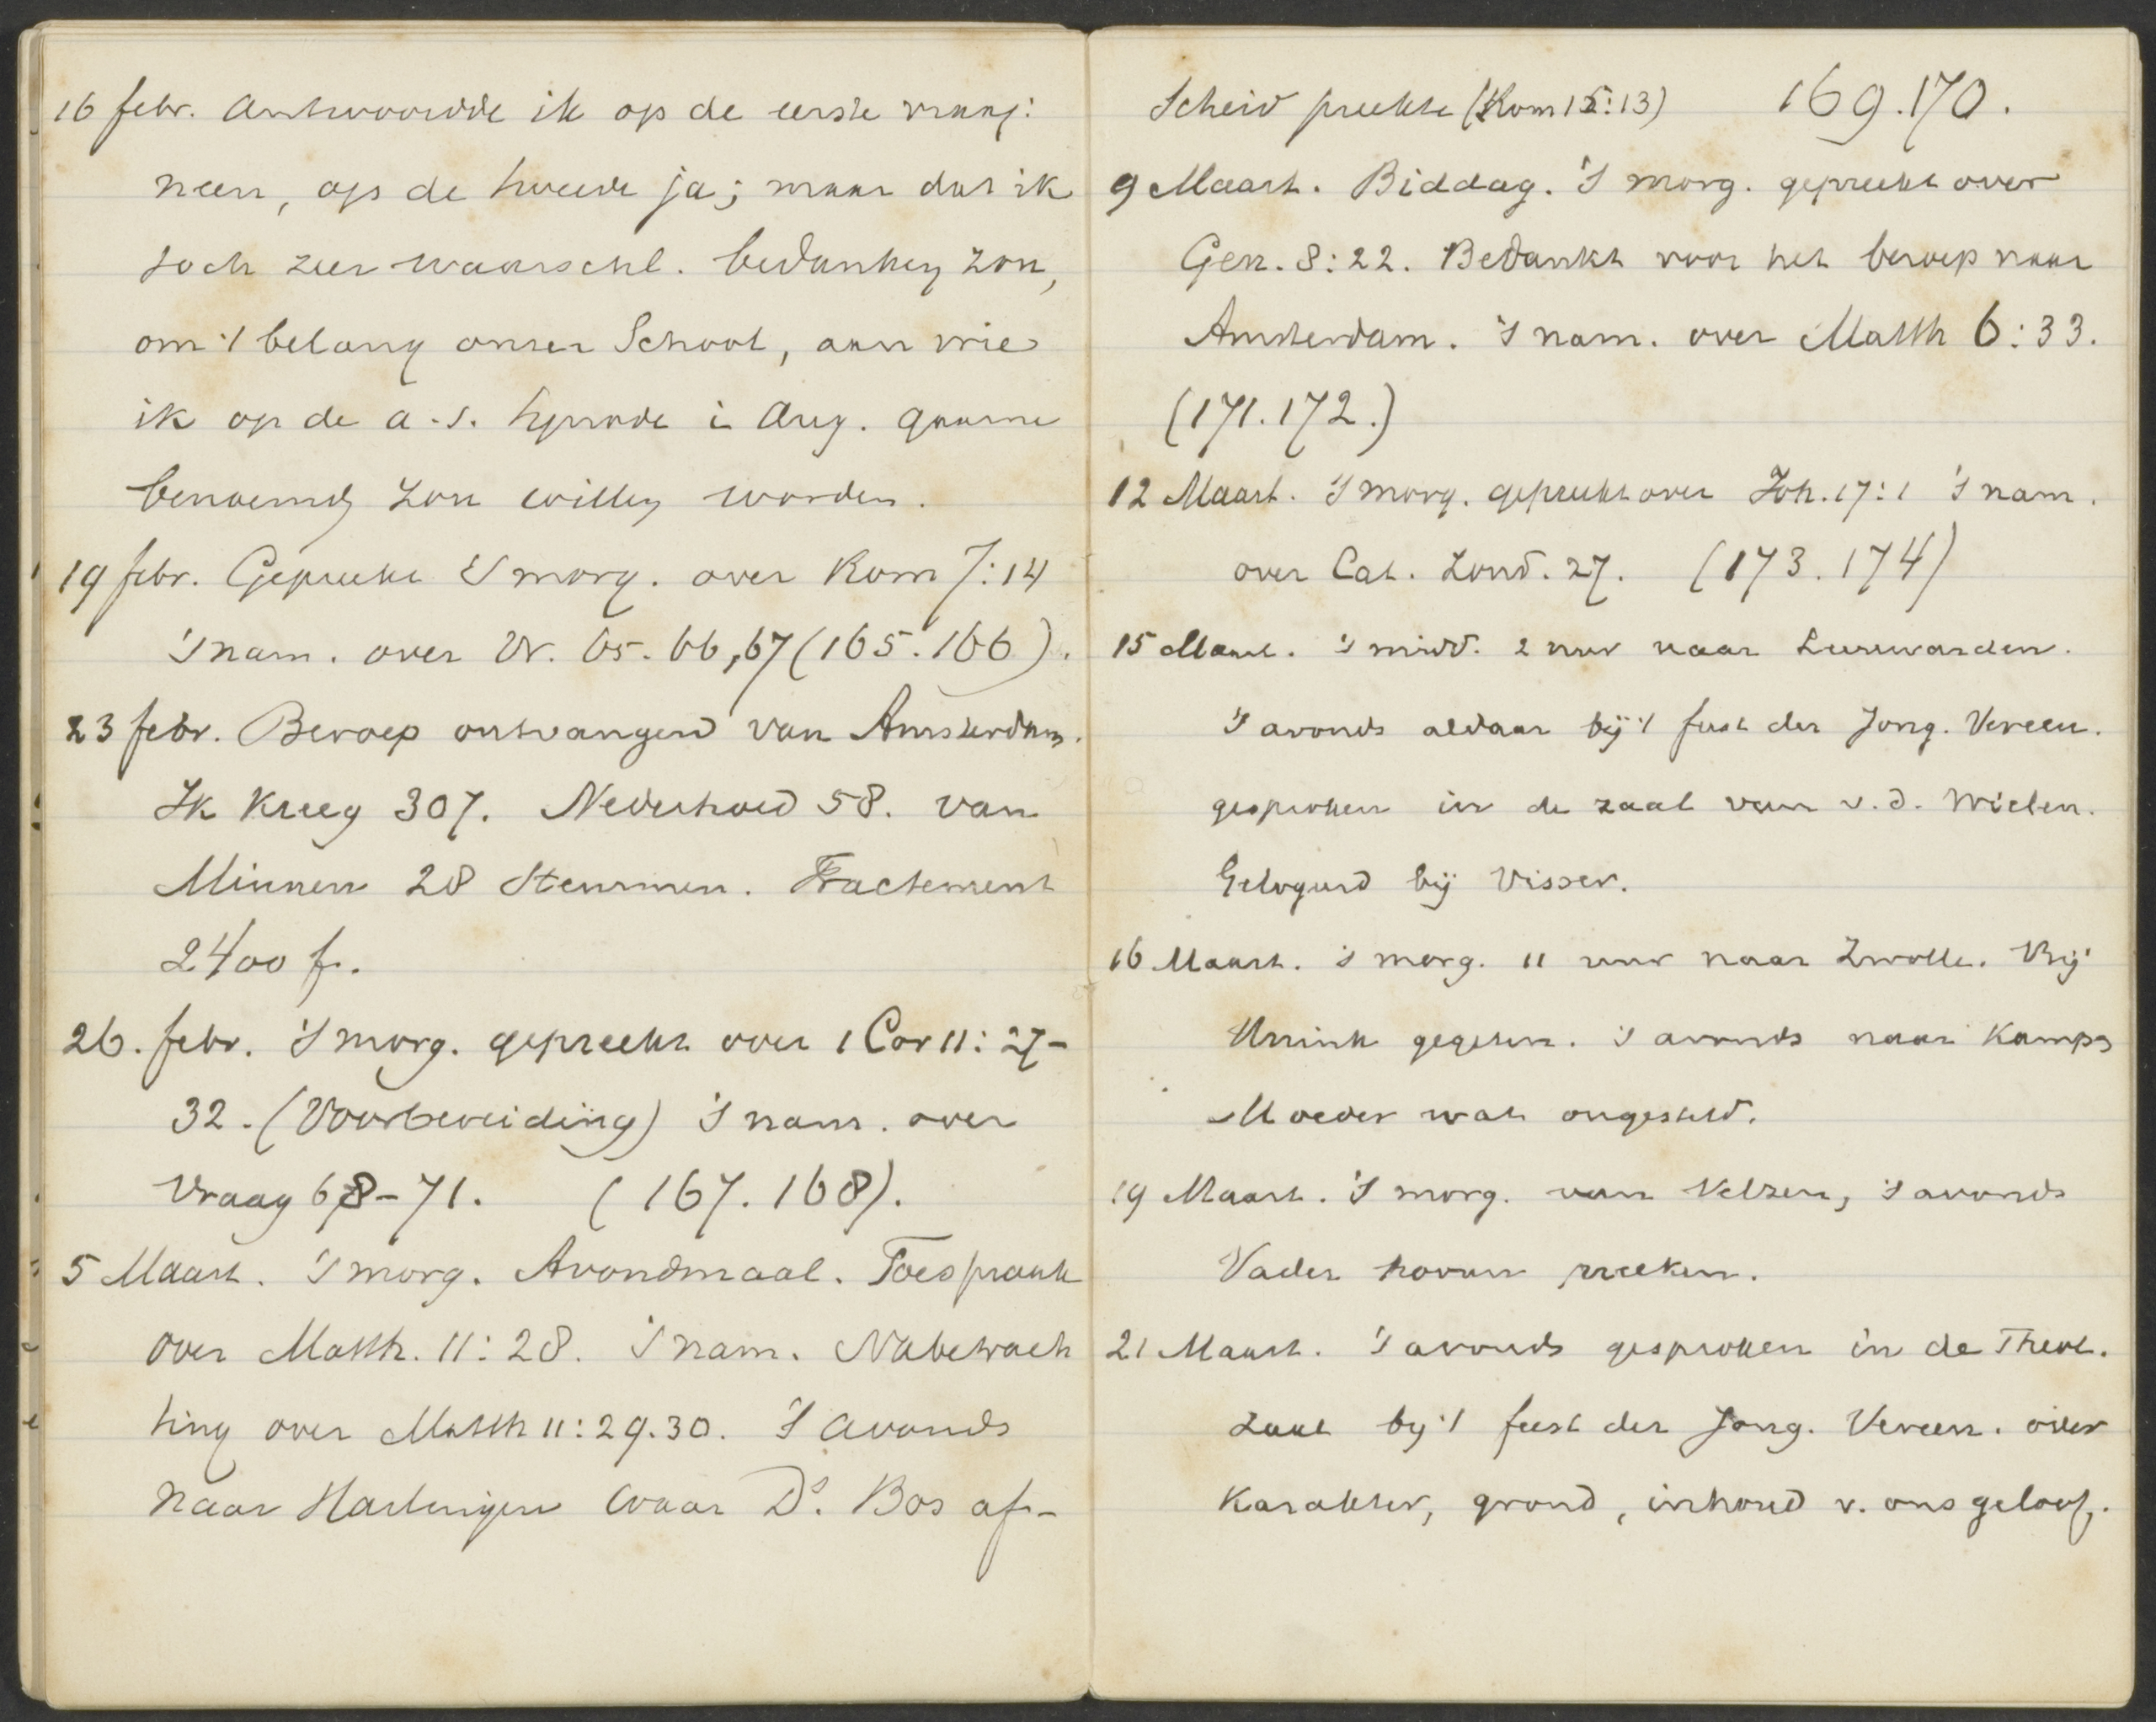 16 febr. Antwoordde ik op de eerste vraag:
neen, op de tweede ja; maar dat ik
toch zeer waarschl. bedanken zou,
om 't belang onzer School, aan wie
ik op de a.s. Synode i Aug. gaarne
benoemd zou willen worden.
19 febr. Gepreekt 's morg. over Rom 7:14
's nam. over Vr. 65. 66, 67 (165. 166).
23 febr. Beroep ontvangen van Amsterdam.
Ik kreeg 307. Nederhoed 58. van
Minnen 28 Stemmen. Tractement
2400 f.
26. febr. 's morg. gepreekt over 1 Cor 11: 27-
32. (Voorbereiding) 's nam. over
Vraag 68-71. (167. 168).
5 Maart. 's morg. Avondmaal. Toespraak
over Matth. 11: 28. 's nam. Nabetrach
ting over Matth 11: 29. 30. 's avonds
naar Harlingen waar Ds. Bos af-
scheid preekte (Rom 15:13) 169. 170.
9 Maart. Biddag. 's morg. gepreekt over
Gen. 8: 22. Bedankt voor het beroep naar
Amsterdam. 's nam. over Matth 6: 33.
(171. 172.)
12 Maart. 's morg. gepreekt over Joh. 17: 1 's nam.
over Cat. Zond. 27. (173. 174)
15 Maart. 's midd. 2 uur naar Leeuwarden.
's avonds aldaar bij 't feest der Jong. Vereen.
gesproken in de zaal van v. d. Wielen.
Gelogeerd bij Visser.
16 Maart. 's morg. 11 uur naar Zwolle. Bij
Unink gegeten. 's avonds naar Kampen
Moeder wat ongesteld.
19 Maart. 's morg. van Velzen, 's avonds
Vader hooren preeken.
21 Maart. 's avonds gesproken in de Theol.
Zaal bij 't feest der Jong. Vereen. over
Karakter, grond, inhoud v. ons geloof.